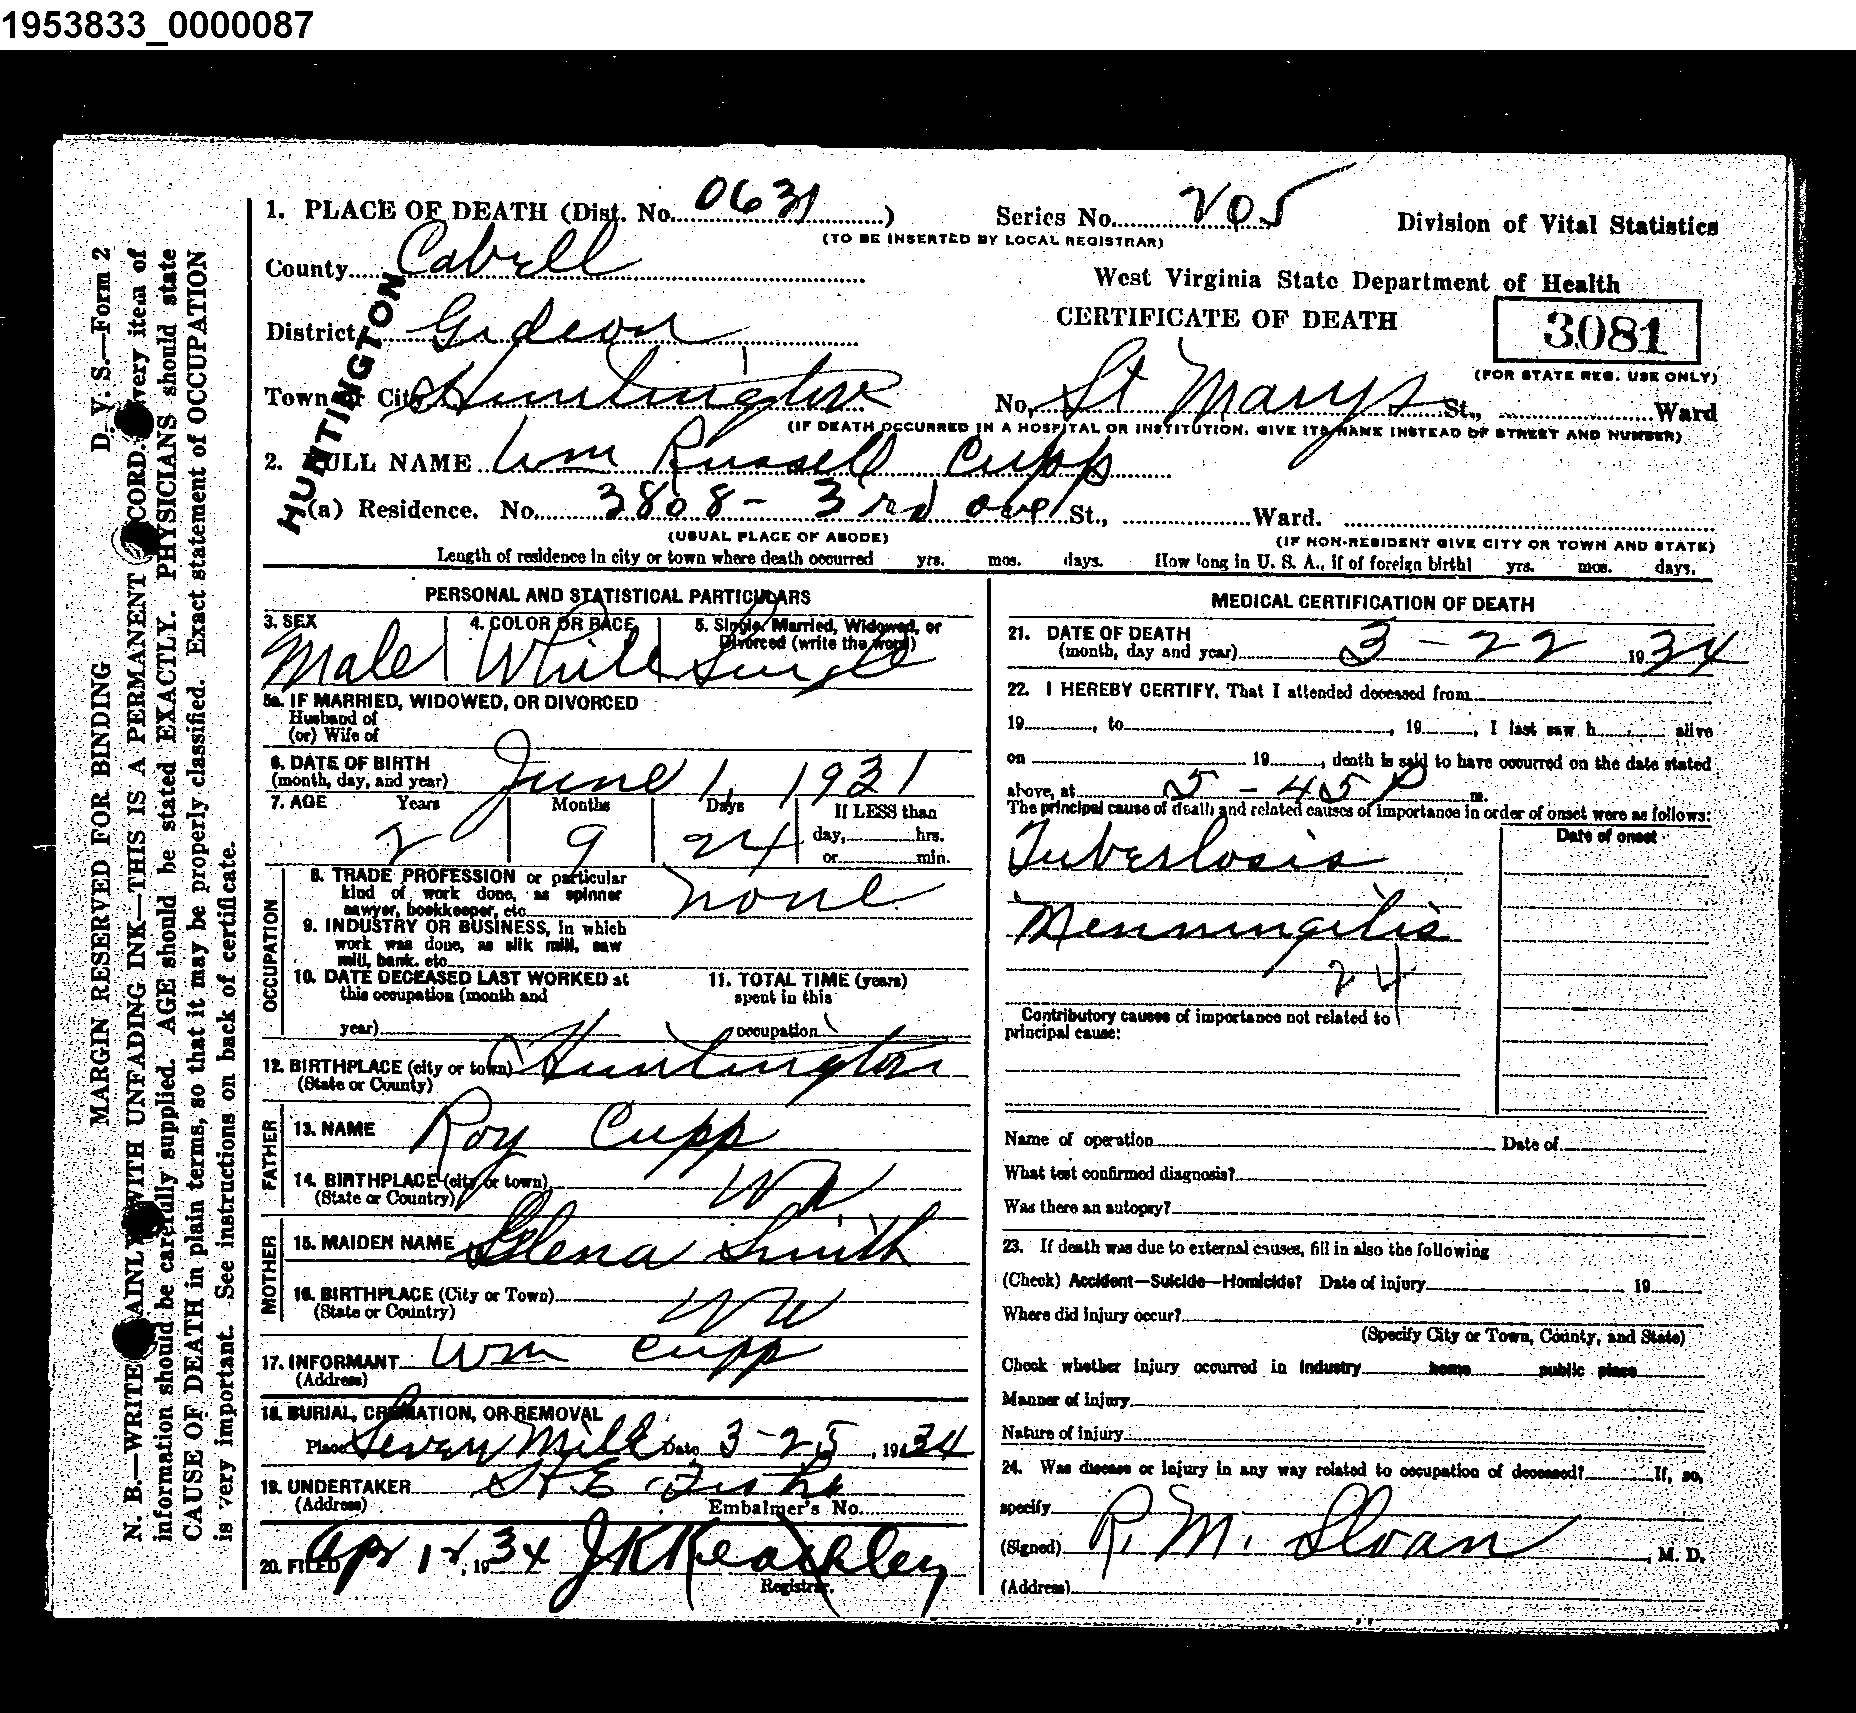 1953833_0000087
D. V. S.—Form 2
MARGIN RESERVED FOR BINDING
N. B.—WRITE WITH UNFADING INK—THIS IS A PERMANENT very item of
information should be carefully supplied. AGE should be stated EXACTLY. PHYSICIANS should state
CAUSE OF DEATH in plain terms, so that it may be properly classified. Exact statement of OCCUPATION
is very important. See instructions on back of certificate.
1. PLACE OF DEATH (Dist. No. 0631) Series No. 205 Division of Vital Statistics
(TO BE INSERTED BY LOCAL REGISTRAR)
County Cabell
West Virginia State Department of Health
District Gideon CERTIFICATE OF DEATH 3081
(FOR STATE REG. USE ONLY)
HUNTINGTON
Town or City Huntington No. St Marys St., Ward
(IF DEATH OCCURRED IN A HOSPITAL OR INSTITUTION, GIVE ITS NAME INSTEAD OF STREET AND NUMBER)
2. FULL NAME Wm Russell Cupp
(a) Residence. No. 3808 - 3rd ave St., Ward.
(USUAL PLACE OF ABODE) (IF NON-RESIDENT GIVE CITY OR TOWN AND STATE)
Length of residence in city or town where death occurred yrs. mos. days. How long in U. S. A., if of foreign birth! yrs. mos. days.
PERSONAL AND STATISTICAL PARTICULARS
3. SEX 4. COLOR OR RACE 5. Single, Married, Widowed, or
Divorced (write the word)
Male White Single
5a. IF MARRIED, WIDOWED, OR DIVORCED
Husband of
(or) Wife of
6. DATE OF BIRTH
(month, day, and year) June 1, 1931
7. AGE Years Months Days If LESS than
2 9 24 day, hrs.
or min.
OCCUPATION
8. TRADE PROFESSION or particular
kind of work done, as spinner
sawyer, bookkeeper, etc. none
9. INDUSTRY OR BUSINESS, in which
work was done, as silk mill, saw
mill, bank. etc
10. DATE DECEASED LAST WORKED at 11. TOTAL TIME (years)
this occupation (month and spent in this
year) occupation
12. BIRTHPLACE (city or town) Huntington
(State or County)
FATHER
13. NAME Roy Cupp
14. BIRTHPLACE (city or town) W V
(State or Country)
MOTHER
15. MAIDEN NAME Glena Smith
16. BIRTHPLACE (City or Town) W V
(State or Country)
17. INFORMANT Wm Cupp
(Address)
18. BURIAL, CREMATION, OR REMOVAL
Place Seven Mile Date 3-25, 1934
19. UNDERTAKER
(Address) Embalmer's No.
20. FILED Apr 12, 1934 J K Keadley
Registrar.
MEDICAL CERTIFICATION OF DEATH
21. DATE OF DEATH
(month, day and year) 3 - 22 1934
22. I HEREBY CERTIFY, That I attended deceased from
19, to, 19, I last saw h alive
on 19, death is said to have occurred on the date stated
above, at 5 - 45 P m.
The principal cause of death and related causes of importance in order of onset were as follows:
Date of onset
Tuberlosis
Menningitis
24
Contributory causes of importance not related to
principal cause:
Name of operation Date of
What test confirmed diagnosis?
Was there an autopsy?
23. If death was due to external causes, fill in also the following
(Check) Accident—Suicide—Homicide? Date of injury 19
Where did injury occur?
(Specify City or Town, County, and State)
Check whether injury occurred in industry home public place
Manner of injury
Nature of injury
24. Was disease or injury in any way related to occupation of deceased? If, so,
specify
(Signed) R. M. Sloan, M. D.
(Address)